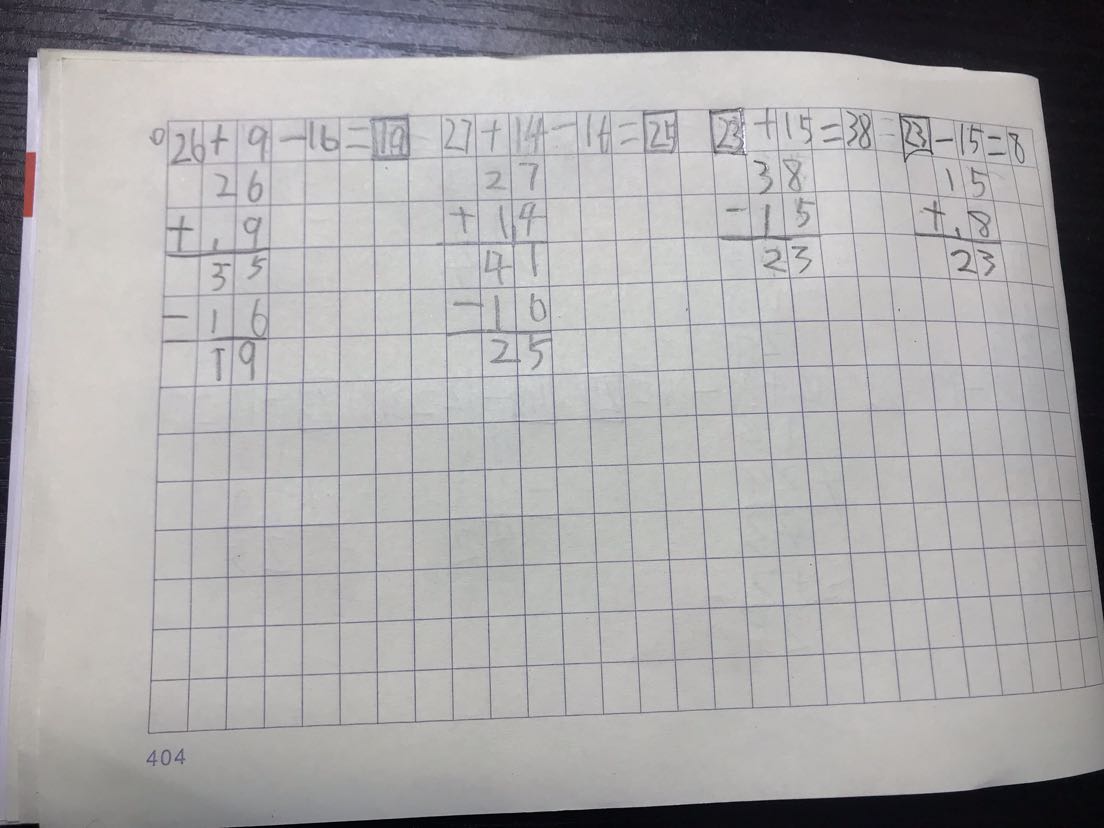 26+9-16=19 27+14-16=25 23+15=38 23-15=8
26 27 38 15
+.9 +1,4 -15 +.8
35 41 23 23
-16 -16
19 25
404